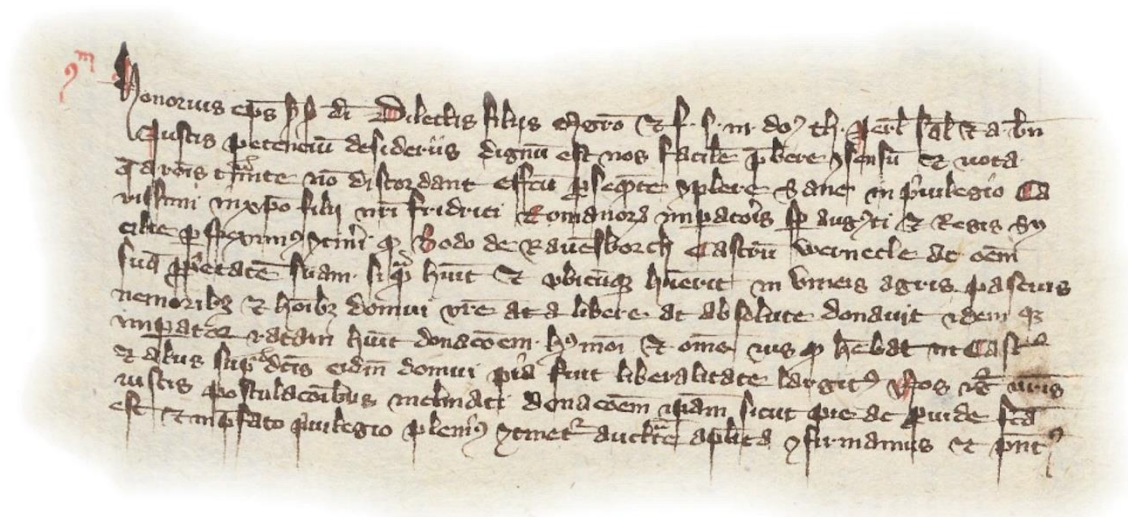 Honorius ep̄s ẜ ẜ di Dilectis filiis mgr̄o ⁊ f. S. m. do9 th. Jerl̄ sal̄ ⁊ a. bn̄
Justis petenciū desideriis dignū est nos facilē p̄bere ꝯsensū ⁊ vota
q̄ a rōis t̄mite nō discordant effcū ꝓseqn̄te ꝯplere Sane in p̄uilegio Ca
rissimi in xp̄o filij nr̄i fridrici Romanorꝝ impatoris sp̄ augꝰti ⁊ Regis Sy
cilie ꝑspeximꝰ ꝯtineri ꝙ Bodo de Rauēsborch Castrū vernecle ac oēm
suā ꝓp̄etatē suam. siqͣ hūit ⁊ vbicūqꝫ hūerit in vineis agris pascuis
nemoribꝫ ⁊ hoībꝫ domui vr̄e at a libere ac absolute donauit idem qꝫ
impator ratam hūit donacōem. hꝰmoi ⁊ om̄e ius ꝙ hēbat in Castͦ
⁊ aliis supͣdc̄is eidm̄ domui pia fuit liberalitate largitꝰ Nos igr̄ vr̄is
iustis postulacōibus inclinati donacōem ip̄am sicut pie ac ꝓuide fc̄a
est ⁊ in p̄fato p̄uilegio pleniꝰ ꝯtinetͬ auctᵗᵉ apl̄ica ꝯfirmamus ⁊ pn̄tꝭ